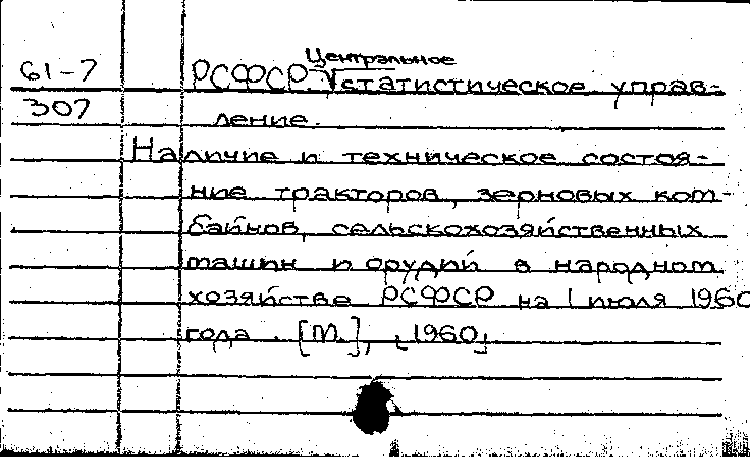 61-7 РСФСР. Центральное статистическое управ-
307 ление.
Наличие и техническое состоя-
ние тракторов, зерновых ком-
байнов, сельскохозяйственных
машин и орудий в народном
хозяйстве РСФСР на 1 июля 1960
года. [М.], [1960]